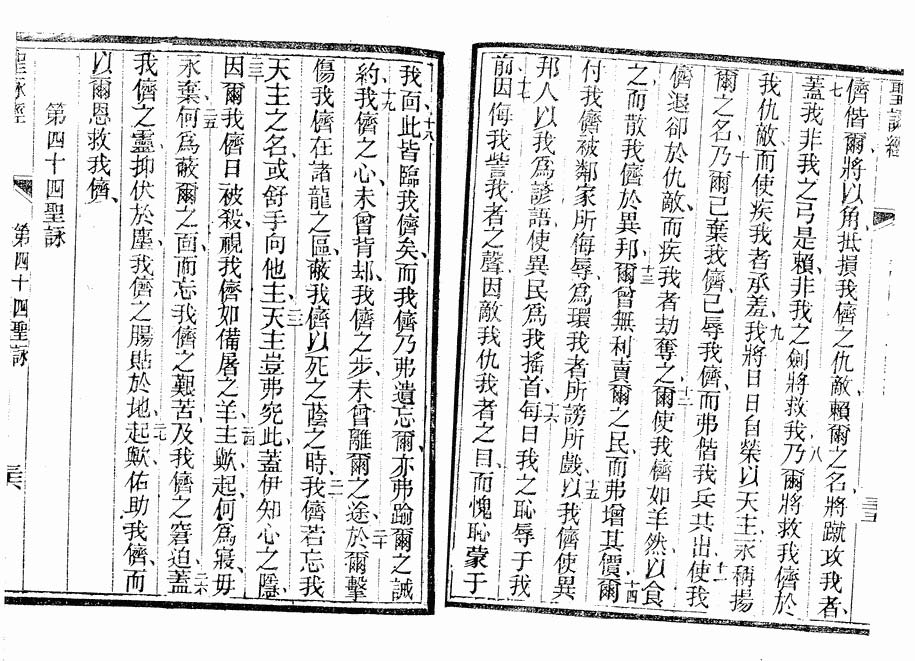 聖詠經
儕偕爾將以角抵損我儕之仇敵、賴爾之名將蹴攻我者、
七 蓋我非我之弓是賴、非我之劍將救我、八 乃爾將救我儕於
我仇敵、而使疾我者承羞、九 我將日日自榮以天主、永稱揚
爾之名、十 乃爾已棄我儕、已辱我儕、而弗偕我兵共出、十一 使我
儕退卻於仇敵、而疾我者劫奪之、十二 爾使我儕如羊然、以食
之、而散我儕於異邦、十三 爾曾無利賣爾之民、而弗增其價、十四 爾
付我儕被鄰家所侮辱、爲環我者所謗所戲、十五 以我儕使異
邦人以我爲諺語、使異民爲我搖首、十六 每日我之恥辱于我
前、十七 因侮我訾我者之聲、因敵我仇我者之目、而愧恥蒙于
我、十八 向此皆臨我儕矣、而我儕乃弗遺忘爾、亦弗踰爾之誡
約、十九 我儕之心未曾背却、我儕之步未曾離爾之途、二十 於爾擊
傷我儕在諸龍之區、蔽我儕以死之蔭之時、二一 我儕若忘我
天主之名、或舒手向他主、二二 天主豈弗究此、蓋伊知心之隱、
二三 因爾我儕日被殺、視我儕如備屠之羊、二四 主歟、起、何爲寢、毋
永棄、二五 何爲蔽爾之面、而忘我儕之艱苦、及我儕之窘迫、二六 蓋
我儕之靈抑伏於塵、我儕之腸貼於地、二七 起歟、佑助我儕、而
以爾恩救我儕、
第四十四聖詠
聖詠經
第四十四聖詠